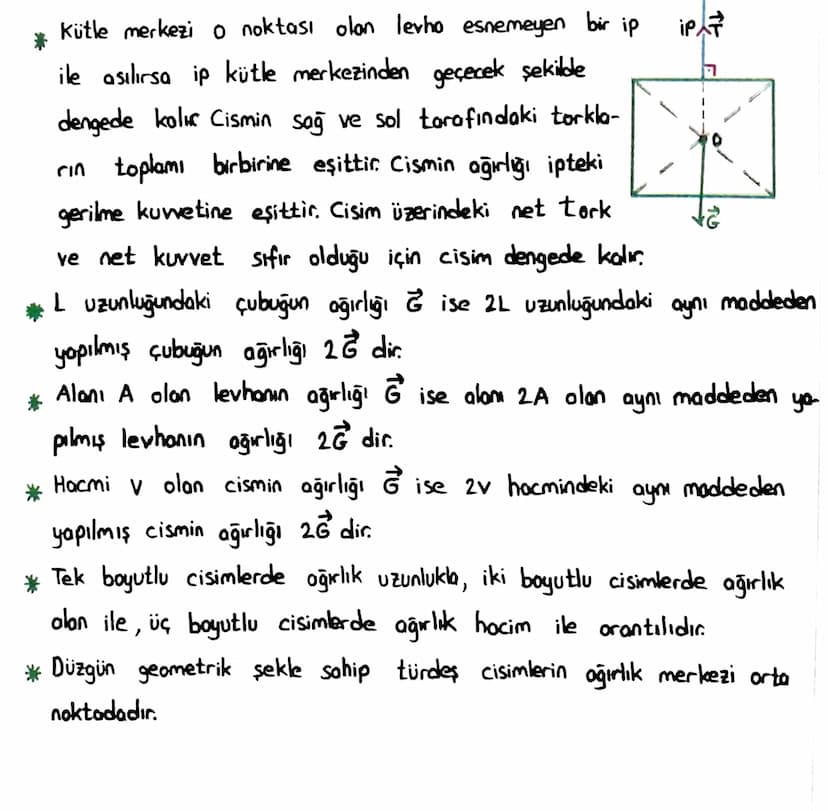 * Kütle merkezi O noktası olan levha esnemeyen bir ip
ip T
ile asılırsa ip kütle merkezinden geçecek şekilde
dengede kalır. Cismin sağ ve sol tarafındaki torkla-
O
rın toplamı birbirine eşittir. Cismin ağırlığı ipteki
gerilme kuvvetine eşittir. Cisim üzerindeki net tork
G
ve net kuvvet sıfır olduğu için cisim dengede kalır.
* L uzunluğundaki çubuğun ağırlığı G ise 2L uzunluğundaki aynı maddeden
yapılmış çubuğun ağırlığı 2G dir.
* Alanı A olan levhanın ağırlığı G ise alanı 2A olan aynı maddeden ya-
pılmış levhanın ağırlığı 2G dir.
* Hacmi V olan cismin ağırlığı G ise 2V hacmindeki aynı maddeden
yapılmış cismin ağırlığı 2G dir.
* Tek boyutlu cisimlerde ağırlık uzunlukla, iki boyutlu cisimlerde ağırlık
alan ile, üç boyutlu cisimlerde ağırlık hacim ile orantılıdır.
* Düzgün geometrik şekle sahip türdeş cisimlerin ağırlık merkezi orta
noktadadır.